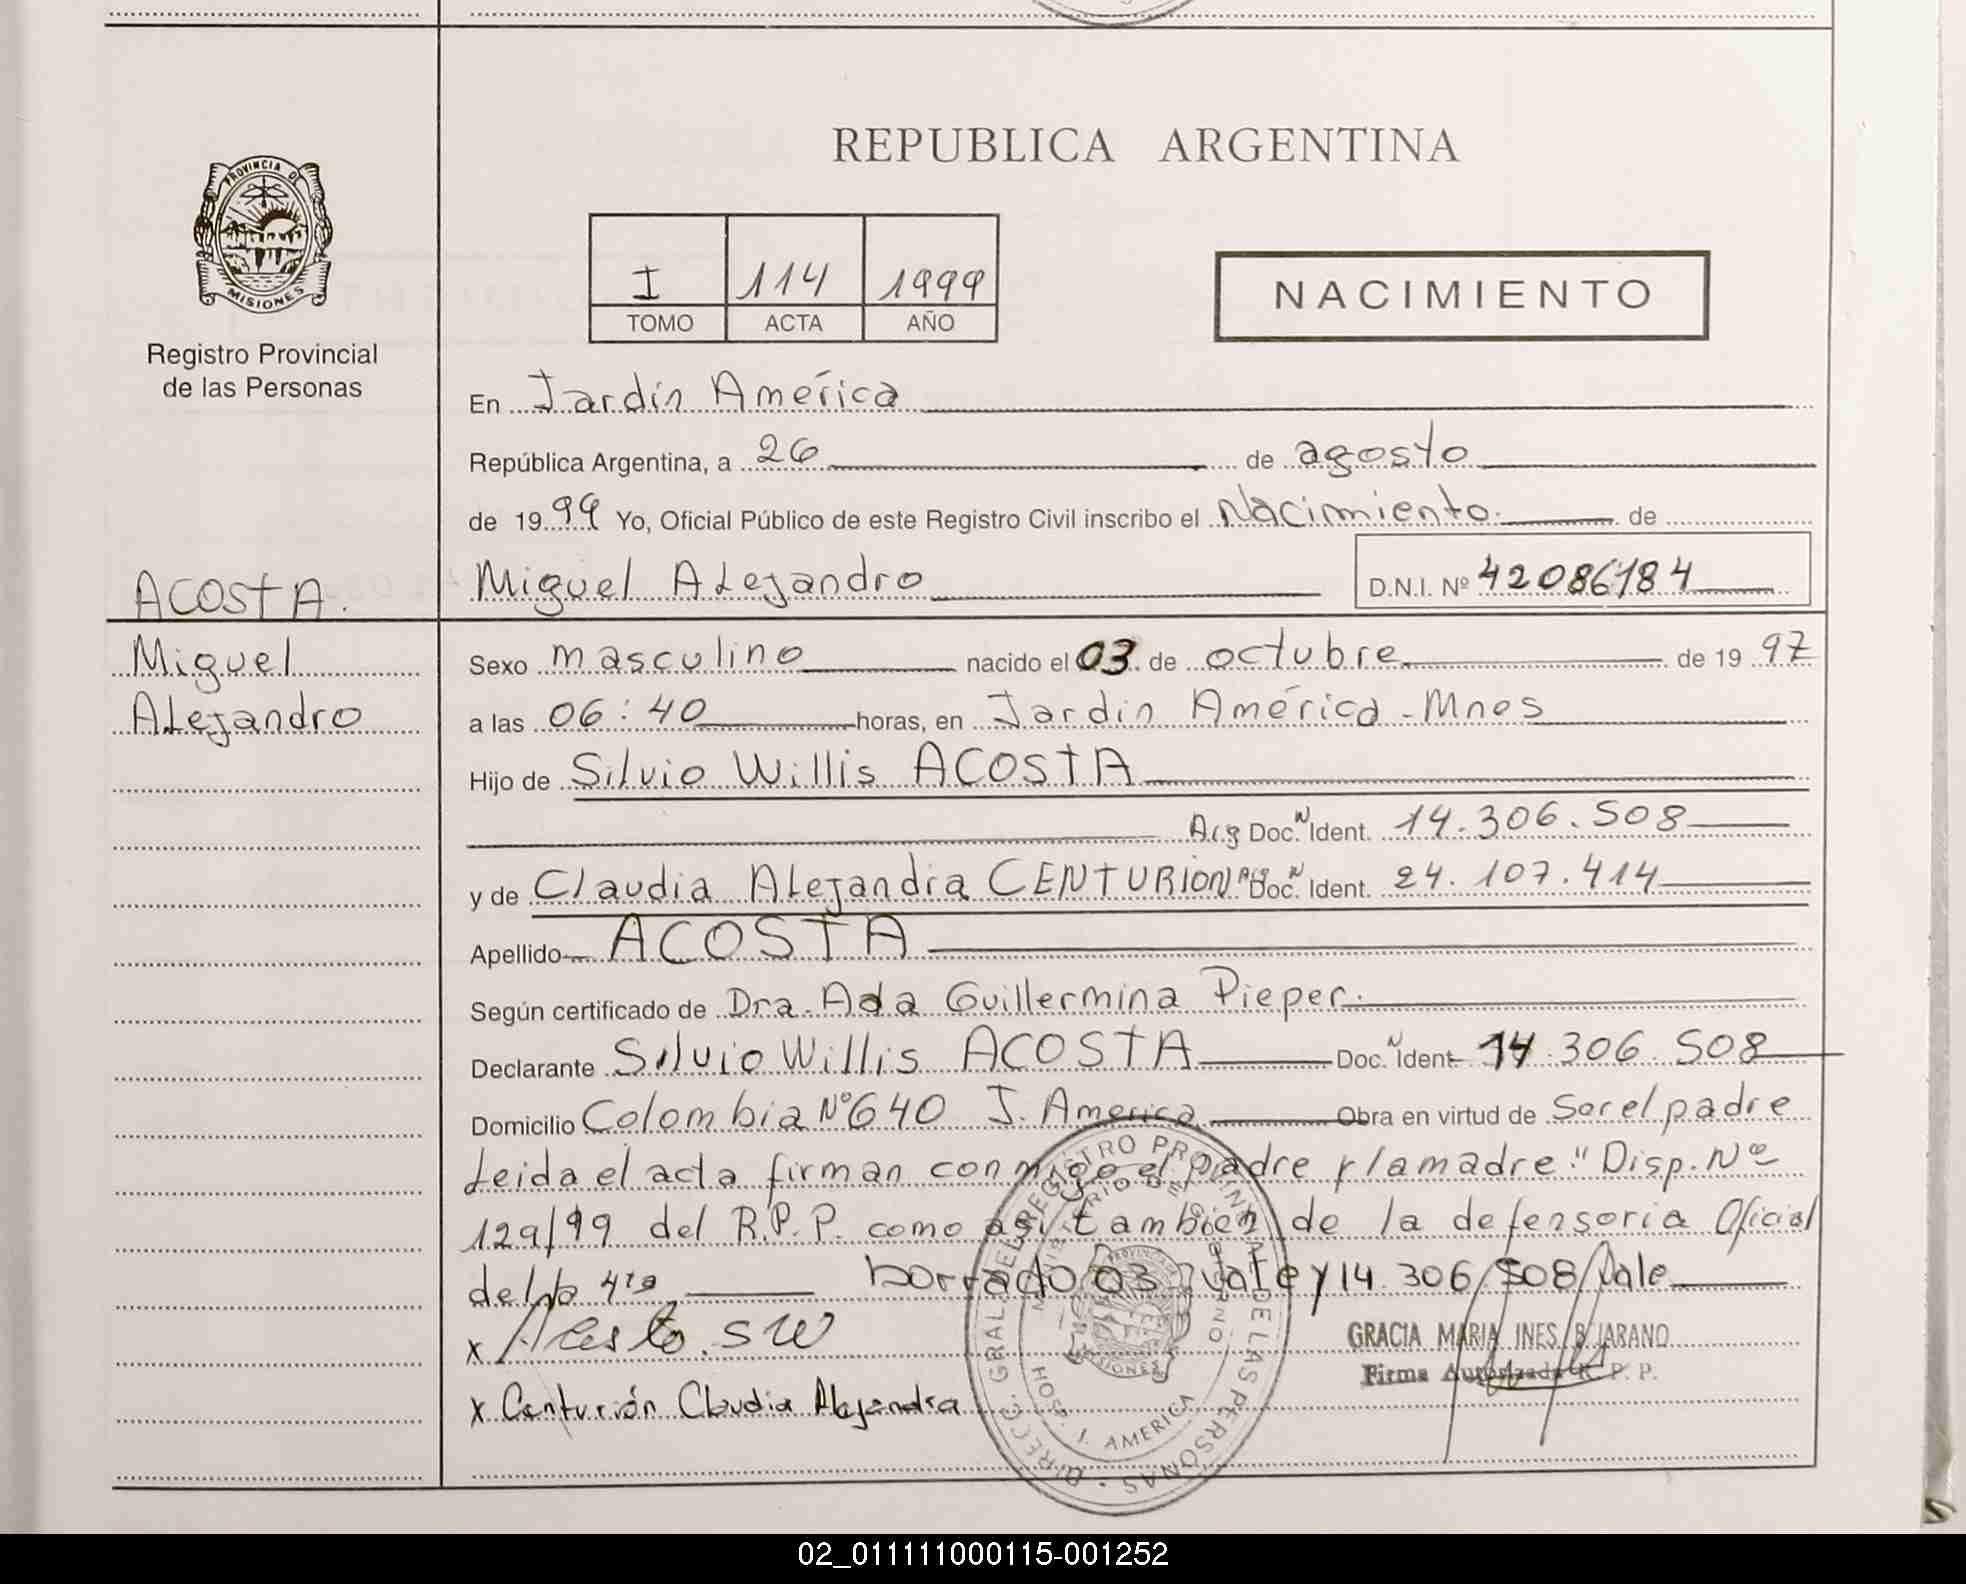 REPUBLICA ARGENTINA
PROVINCIA DE
MISIONES
Registro Provincial
de las Personas
I 114 1999
TOMO ACTA AÑO
NACIMIENTO
En Jardín América
República Argentina, a 26 de agosto
de 1999 Yo, Oficial Público de este Registro Civil inscribo el Nacimiento. de
ACOSTA.
Miguel Alejandro D.N.I. Nº 42086184
Miguel
Alejandro
Sexo masculino nacido el 03 de octubre de 1997
a las 06:40 horas, en Jardín América - Mnes
Hijo de Silvio Willis ACOSTA
Arg Doc. N Ident. 14.306.508
y de Claudia Alejandra CENTURION Arg Doc. N Ident. 24.107.414
Apellido ACOSTA
Según certificado de Dra. Ada Guillermina Pieper.
Declarante Silvio Willis ACOSTA Doc. N Ident 14.306.508
Domicilio Colombia Nº 640 J. America Obra en virtud de Ser el padre
Leida el acta firman conmigo el padre y la madre." Disp. Nº
129/99 del R.P.P. como así tambien de la defensoria Oficial
de la 4ta borrado 03 Vale y 14.306.508 Vale
x Acosta. S W
GRACIA MARIA INES BEJARANO
Firma Autorizada R. P. P.
x Centurión Claudia Alejandra
DIRECC. GRAL. DEL REGISTRO PROVINCIAL DE LAS PERSONAS
MINISTERIO DE GOBIERNO
HOSP. J. AMERICA
MISIONES
02_011111000115-001252